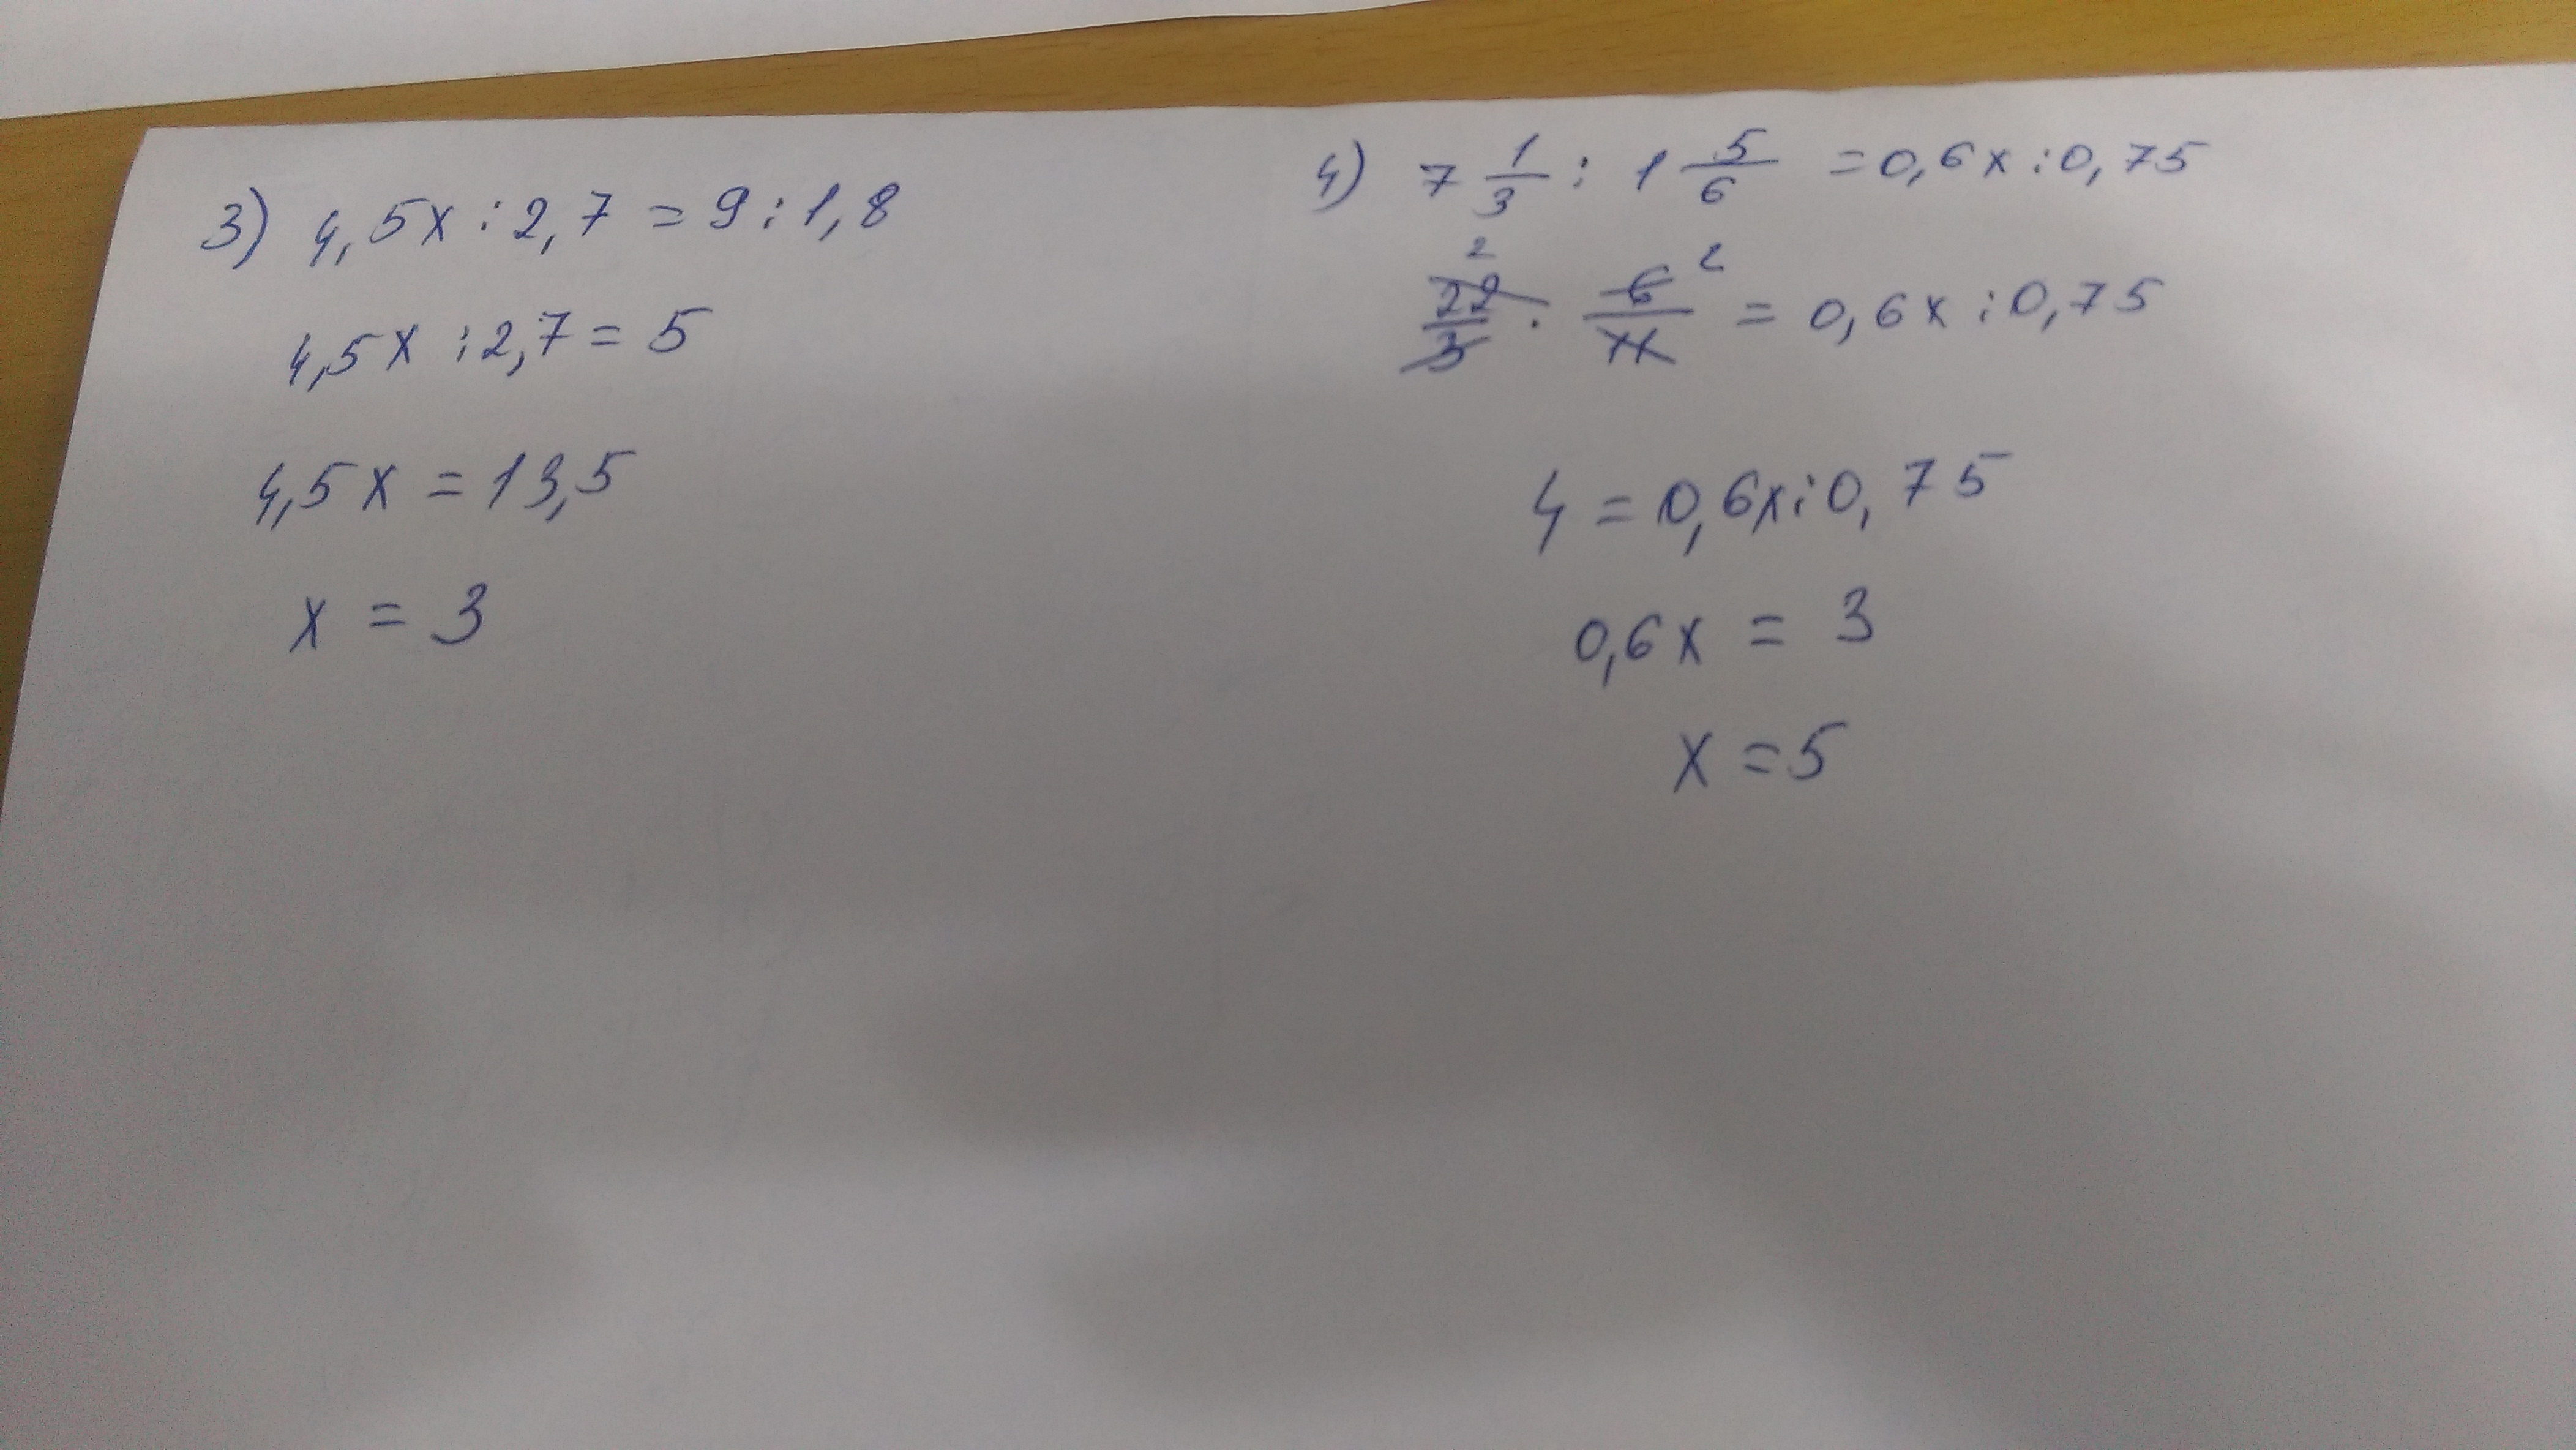 3) 4,5x : 2,7 = 9 : 1,8
4,5x : 2,7 = 5
4,5x = 13,5
x = 3
4) 7 1/3 : 1 5/6 = 0,6x : 0,75
22/3 2 · 6/11 2 = 0,6x : 0,75
4 = 0,6x : 0,75
0,6x = 3
x = 5